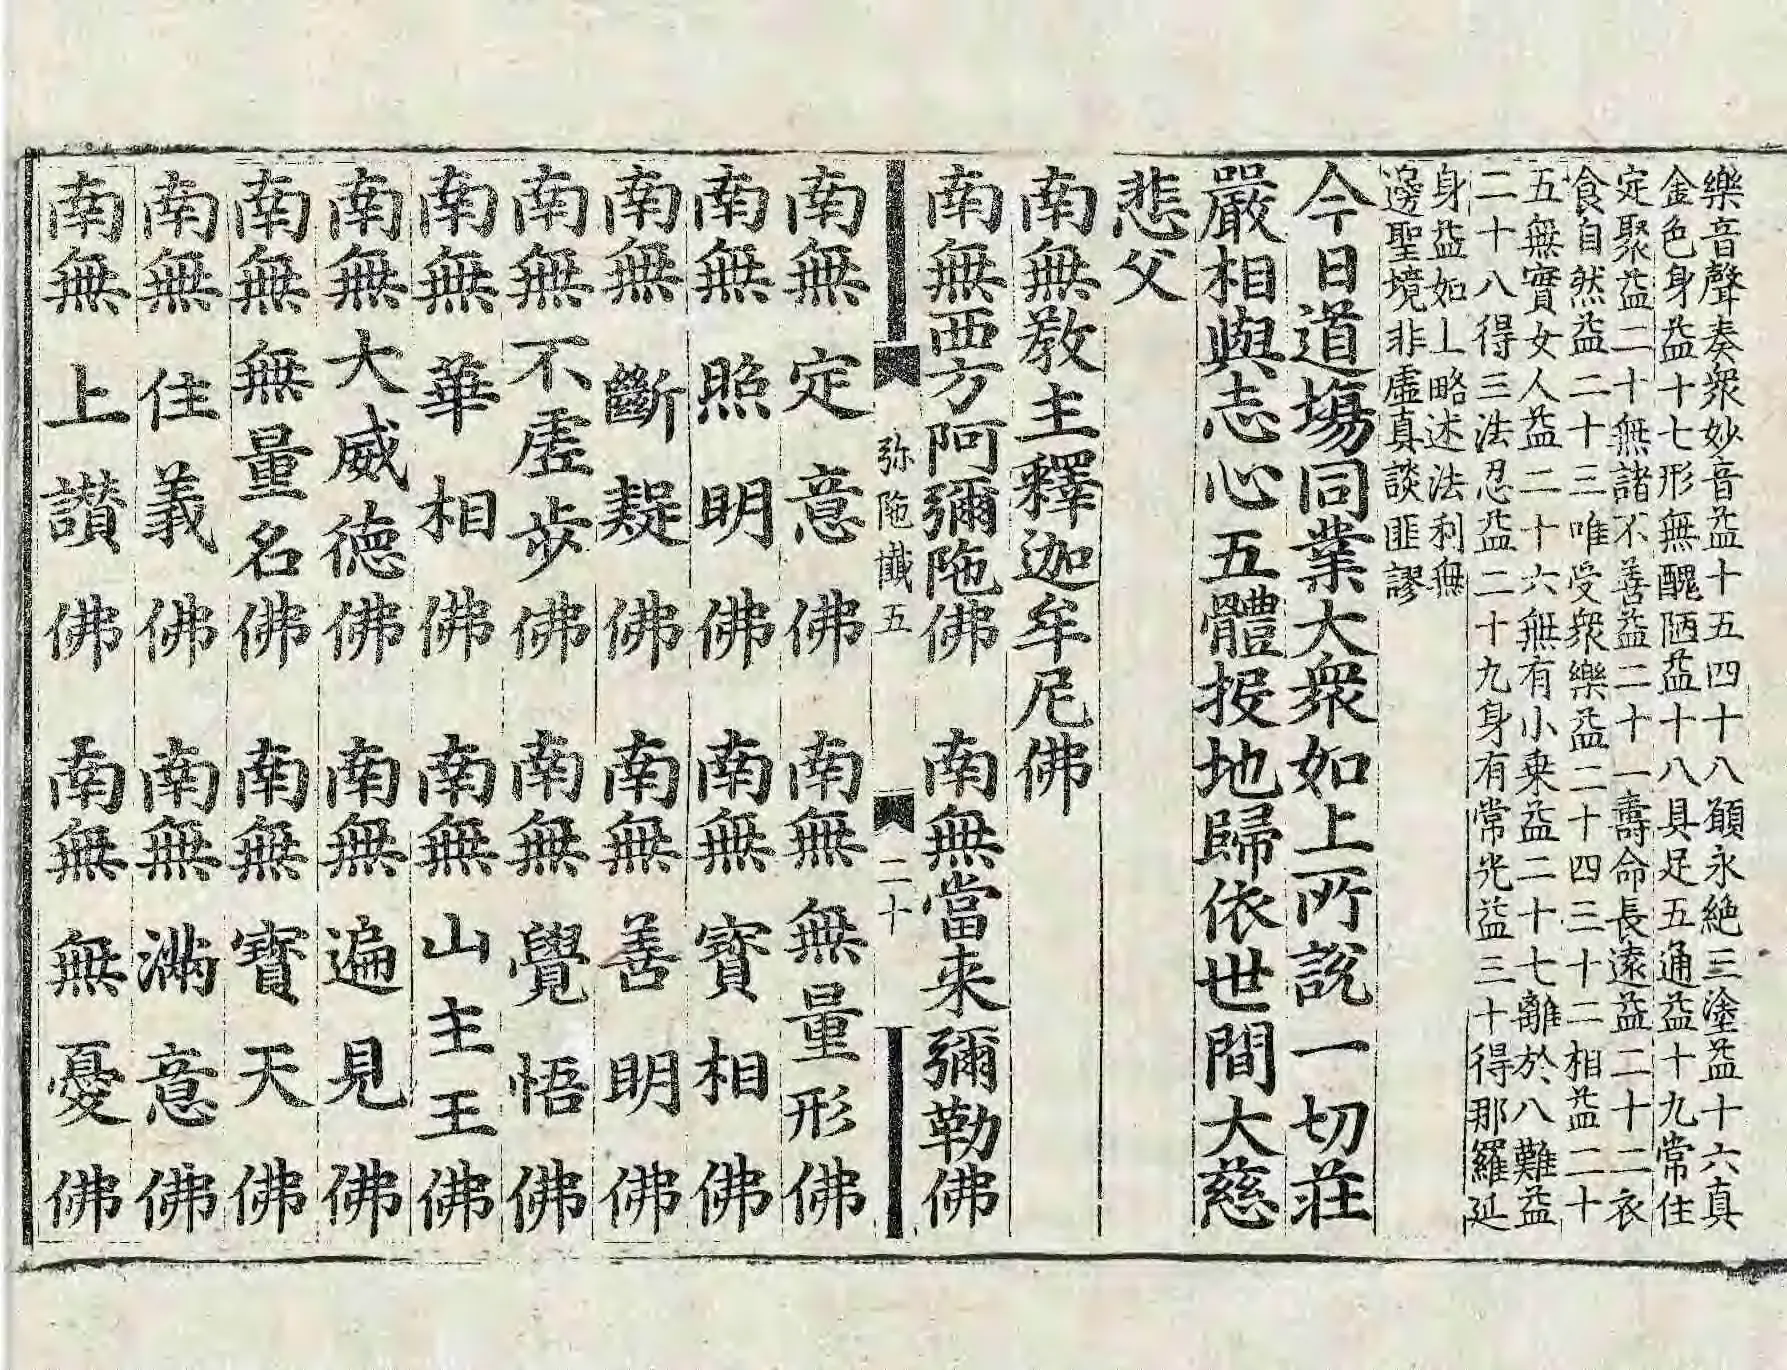 樂音聲奏衆妙音益十五四十八願永絕三塗益十六真
金色身益十七形無醜陋益十八具足五通益十九常住
定聚益二十無諸不善益二十一壽命長遠益二十二衣
食自然益二十三唯受衆樂益二十四三十二相益二十
五無實女人益二十六無有小乗益二十七離於八難益
二十八得三法忍益二十九身有常光益三十得那羅延
身益如上略述法利無
邊聖境非虛真談匪謬
今日道場同業大衆如上所說一切莊
嚴相與志心五體投地歸依世間大慈
悲父
南無敎主釋迦牟尼佛
南無西方阿彌陁佛 南無當来彌勒佛
弥陁懺五 二十
南無定意佛 南無無量形佛
南無照明佛 南無寳相佛
南無斷疑佛 南無善明佛
南無不虛步佛 南無覺悟佛
南無華相佛 南無山主王佛
南無大威德佛 南無遍見佛
南無無量名佛 南無寳天佛
南無住義佛 南無滿意佛
南無上讚佛 南無無憂佛